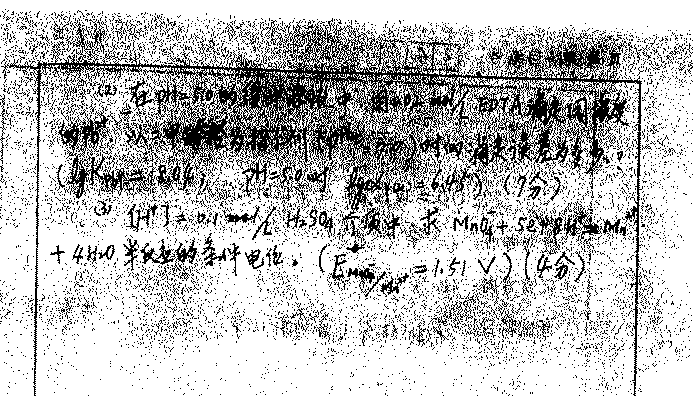 (2) 在pH=5.0的缓冲溶液中,用0.02 mol/L EDTA滴定同浓度
的Pb²⁺ 以二甲酚橙为指示剂 时的滴定误差为多少。
(lgK =18.04, pH=5.0时 =6.45) (7分)
(3) [H⁺]=0.1 mol/L H₂SO₄介质中 求 MnO₄⁻+5e+8H⁺=Mn²⁺
+4H₂O 半反应的条件电位。(E MnO₄⁻/Mn²⁺ =1.51 V) (4分)